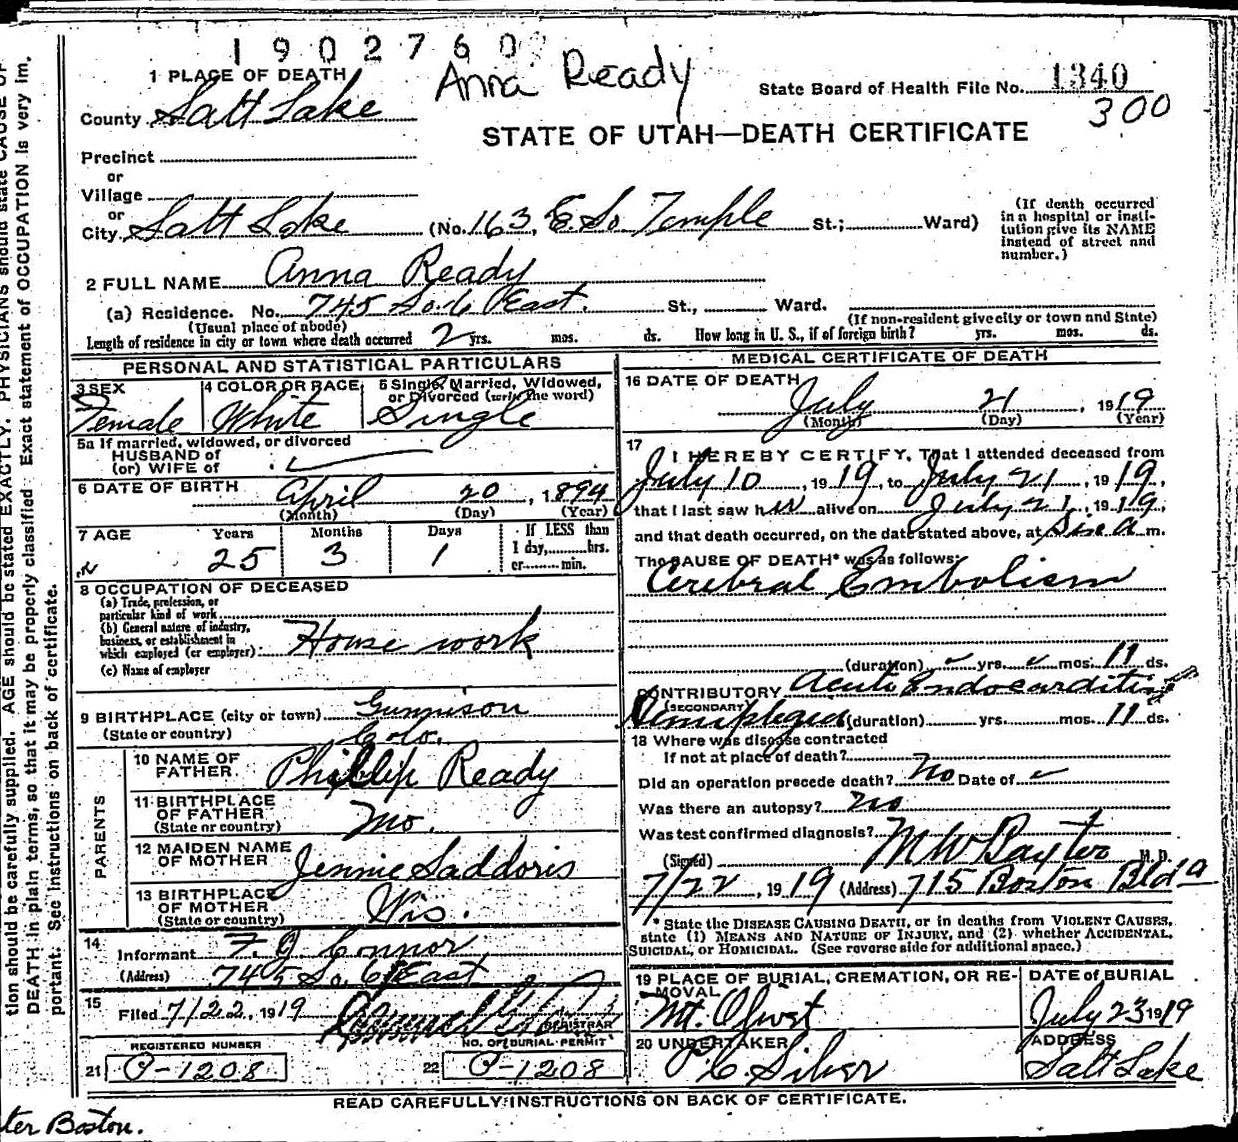 1902760
Anna Ready
1 PLACE OF DEATH
State Board of Health File No. 1340
300
County Salt Lake
STATE OF UTAH—DEATH CERTIFICATE
Precinct
or
Village
or
City. Salt Lake (No. 163, E. So. Temple St.; Ward)
(If death occurred in a hospital or institution give its NAME instead of street and number.)
2 FULL NAME Anna Ready
(a) Residence. No. 745 So. 6 East. St., Ward.
(Usual place of abode) (If non-resident give city or town and State)
Length of residence in city or town where death occurred 2 yrs. mos. ds. How long in U. S., if of foreign birth? yrs. mos. ds.
PERSONAL AND STATISTICAL PARTICULARS
3 SEX Female
4 COLOR OR RACE White
5 Single, Married, Widowed, or Divorced (write the word) Single
5a If married, widowed, or divorced
HUSBAND of
(or) WIFE of
6 DATE OF BIRTH April 20, 1894
(Month) (Day) (Year)
7 AGE Years Months Days If LESS than
25 3 1 1 day, hrs.
or min.
8 OCCUPATION OF DECEASED
(a) Trade, profession, or
particular kind of work
(b) General nature of industry,
business, or establishment in
which employed (or employer) House work
(c) Name of employer
9 BIRTHPLACE (city or town) Gunnison
(State or country) Colo.
PARENTS
10 NAME OF FATHER Phillip Ready
11 BIRTHPLACE OF FATHER (State or country) Mo.
12 MAIDEN NAME OF MOTHER Jennie Saddoris
13 BIRTHPLACE OF MOTHER (State or country) Wis.
14 Informant F. J. Connor
(Address) 745 So. 6 East
15 Filed 7/22, 1919
REGISTRAR
REGISTERED NUMBER NO. OF BURIAL PERMIT
21 P-1208 22 P-1208
MEDICAL CERTIFICATE OF DEATH
16 DATE OF DEATH July 21, 1919
(Month) (Day) (Year)
17 I HEREBY CERTIFY, That I attended deceased from
July 10, 1919, to July 21, 1919,
that I last saw her alive on July 21, 1919,
and that death occurred, on the date stated above, at a m.
The CAUSE OF DEATH* was as follows:
Cerebral Embolism
(duration) yrs. mos. 11 ds.
CONTRIBUTORY Acute Endocarditis
(SECONDARY)
Hemiplegia (duration) yrs. mos. 11 ds.
18 Where was disease contracted
If not at place of death?
Did an operation precede death? No Date of
Was there an autopsy? No
Was test confirmed diagnosis?
(Signed) M W Baxter M. D.
7/22, 1919 (Address) 715 Boston Bldg
* State the DISEASE CAUSING DEATH, or in deaths from VIOLENT CAUSES,
state (1) MEANS AND NATURE OF INJURY, and (2) whether ACCIDENTAL,
SUICIDAL, or HOMICIDAL. (See reverse side for additional space.)
19 PLACE OF BURIAL, CREMATION, OR REMOVAL Mt. Olivet
DATE of BURIAL July 23 1919
20 UNDERTAKER Silver
ADDRESS Salt Lake
READ CAREFULLY INSTRUCTIONS ON BACK OF CERTIFICATE.
tion should be carefully supplied. AGE should be stated EXACTLY. PHYSICIANS should state CAUSE OF
DEATH in plain terms, so that it may be properly classified. Exact statement of OCCUPATION is very im.
portant. See instructions on back of certificate.
ter Boston.